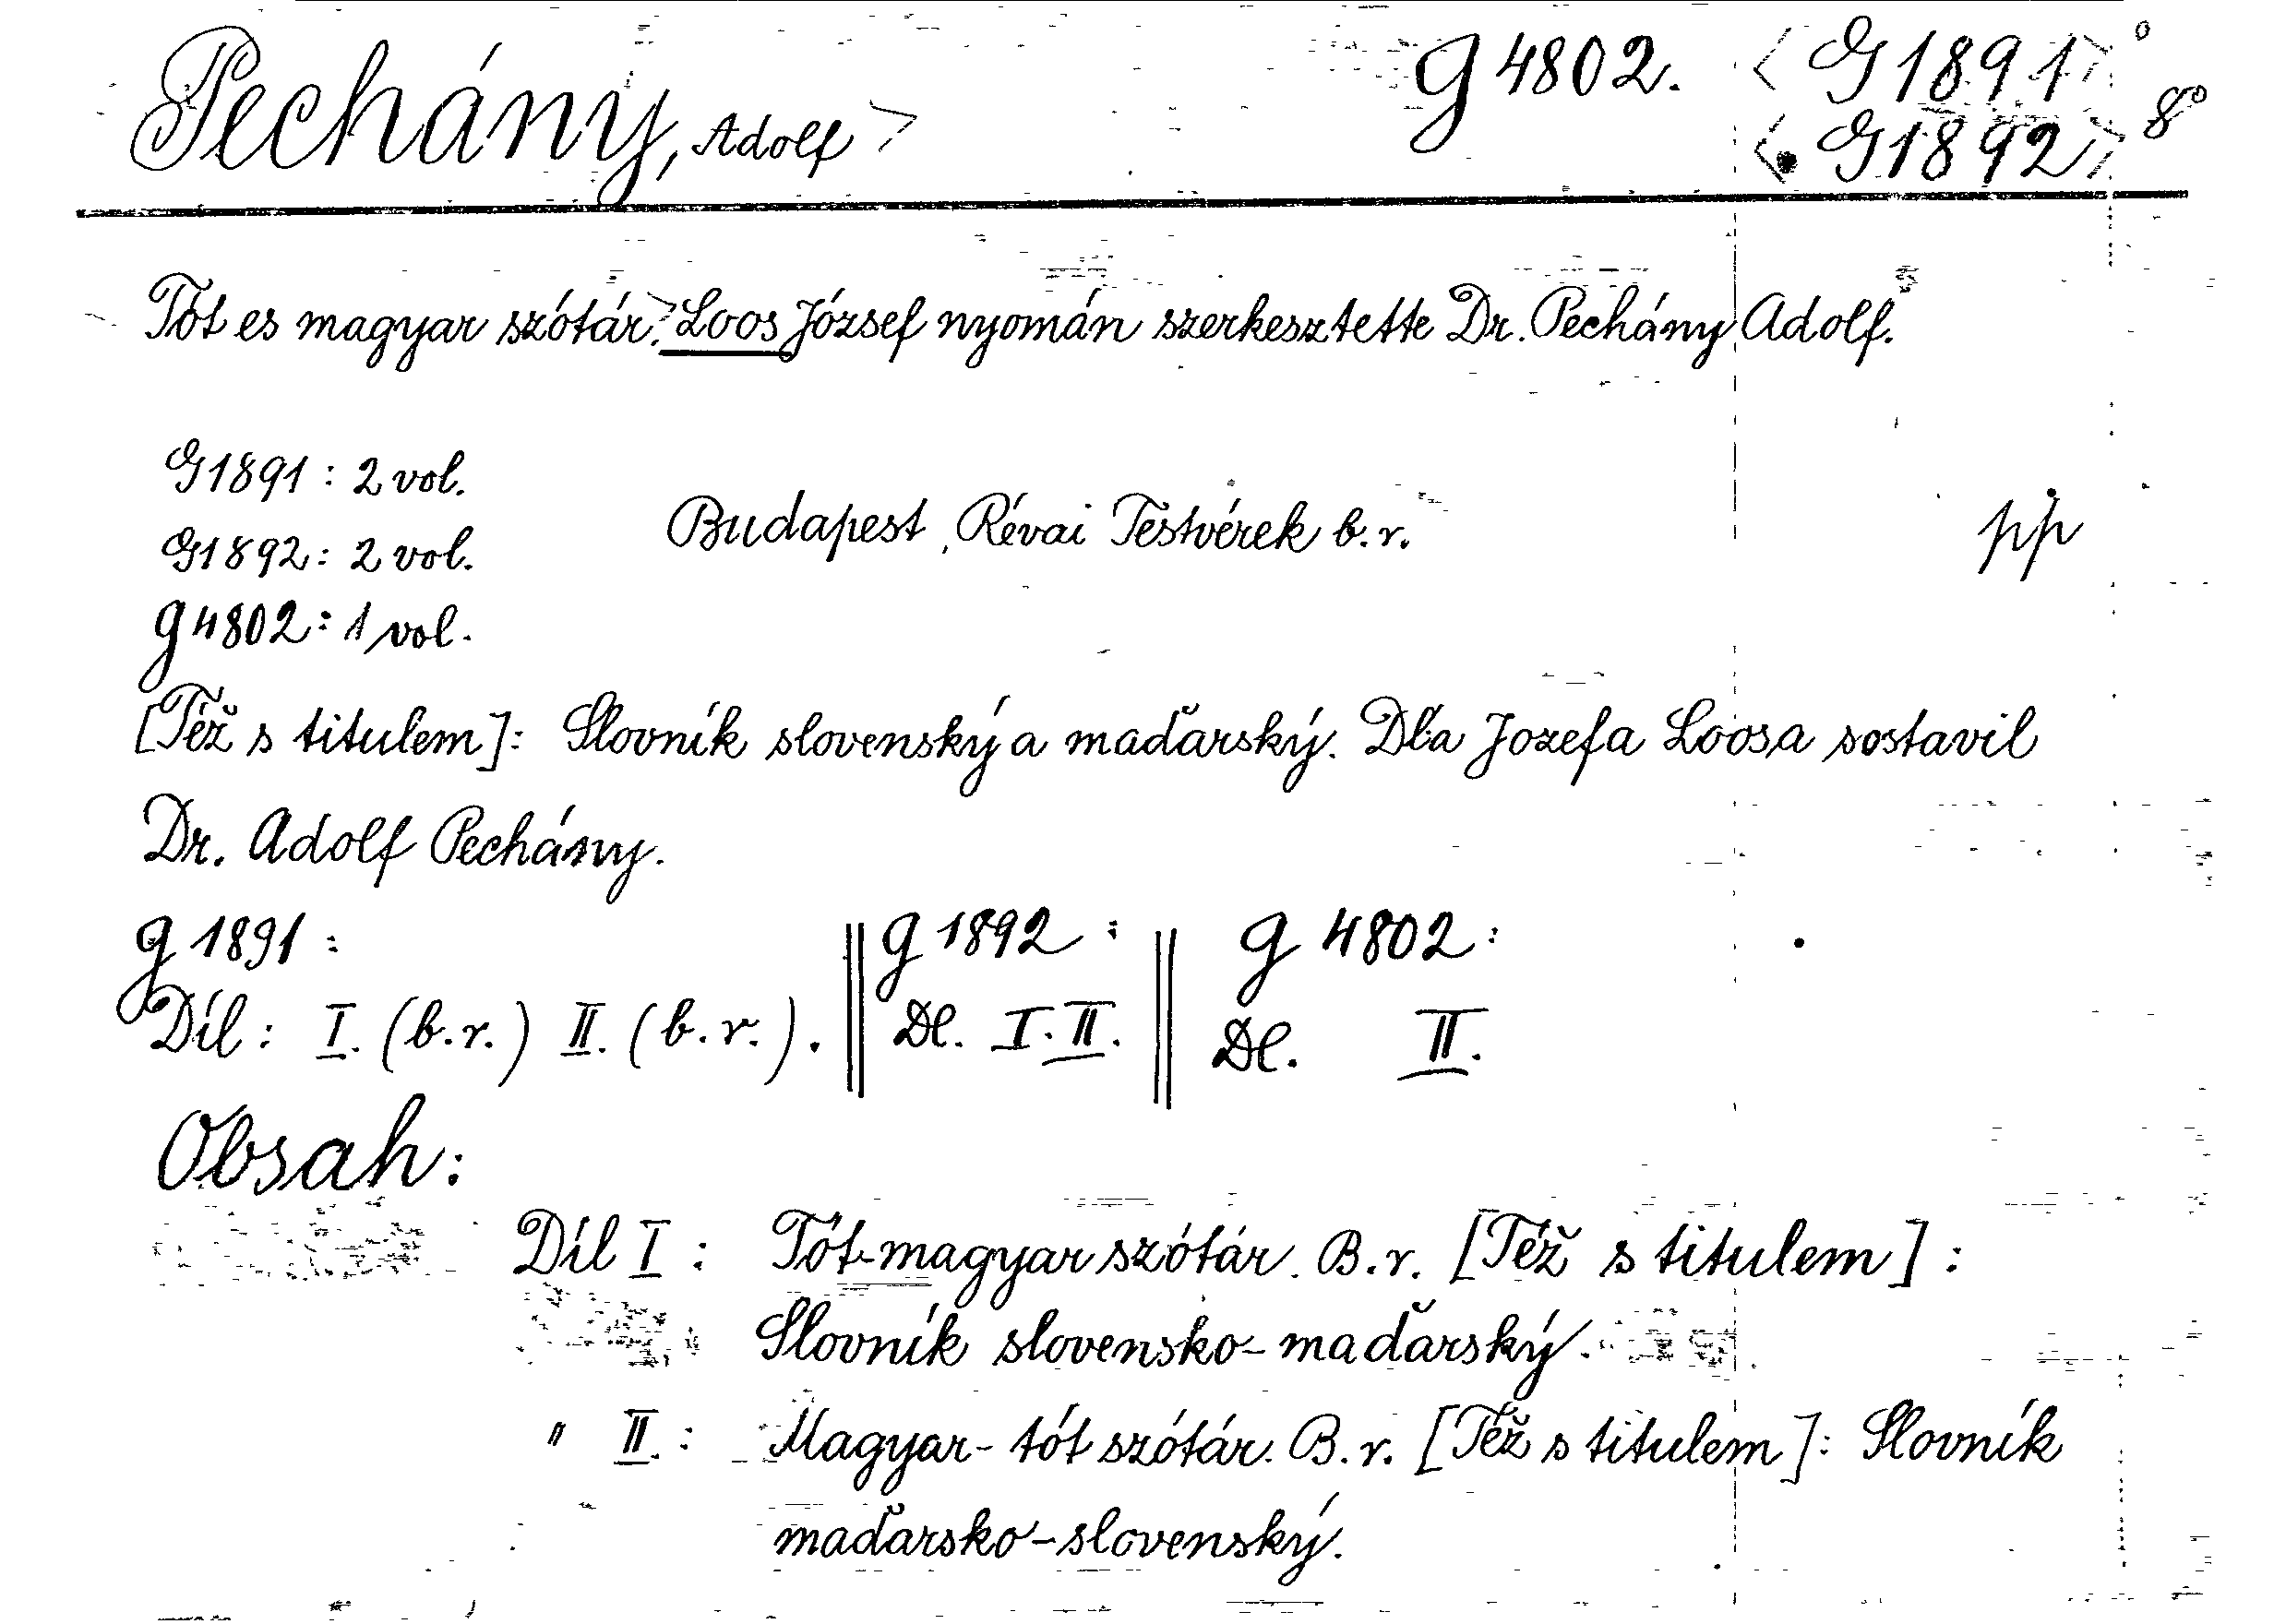 Pechány, Adolf > g 4802. <G 1891>°
<G 1892> 8°
Tót es magyar szótár. > Loos József nyomán szerkesztette Dr. Pechány Adolf.
G 1891 : 2 vol.
G 1892 : 2 vol.
Budapest, Révai Testvérek b. r. pp
g 4802 : 1 vol.
[Též s titulem]: Slovník slovenský a maďarský. Dľa Jozefa Loosa sostavil
Dr. Adolf Pechány.
g 1891 : || g 1892 : || g 4802 :
Díl : I. (b.r.) II. (b.r.). || Dl. I. II. || Dl. II.
Obsah :
Díl I : Tót-magyar szótár. B. r. [Též s titulem] :
Slovník slovensko-maďarský.
" II. : Magyar-tót szótár. B. r. [Též s titulem] : Slovník
maďarsko-slovenský.